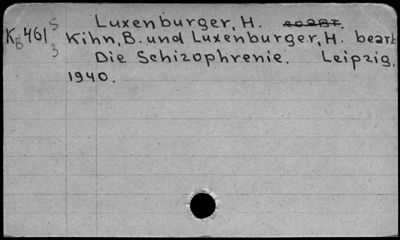 Luxenburger, H. coabt.
K_B 461 S/3
Kihn, B. und Luxenburger, H. bearb
Die Schizophrenie. Leipzig,
1940.